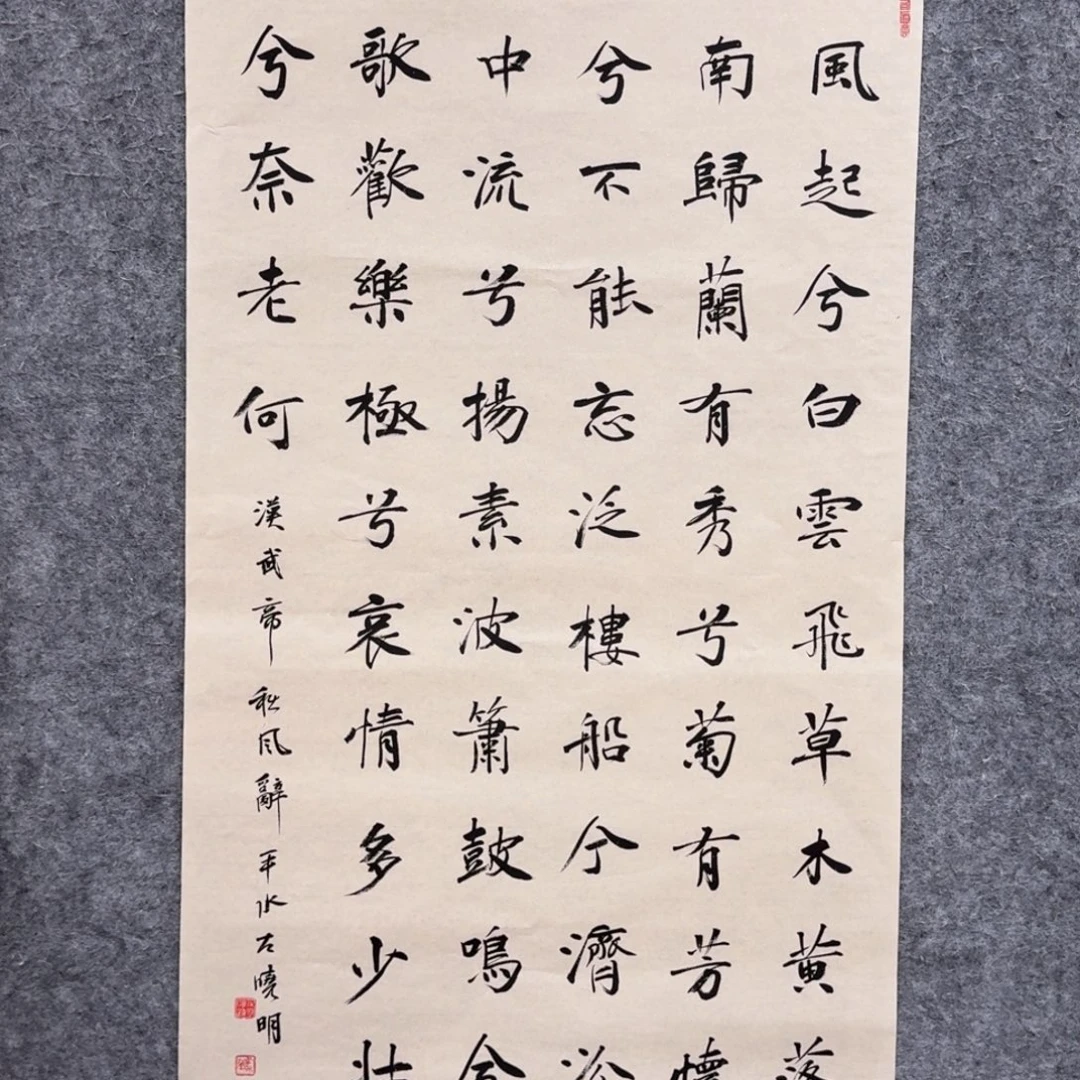 風起兮白雲飛草木黄落
南歸蘭有秀兮菊有芳懷
兮不能忘泛樓船兮濟汾
中流兮揚素波簫鼓鳴兮
歌歡樂極兮哀情多少壯
兮奈老何 漢武帝秋風辭 平水左曉明